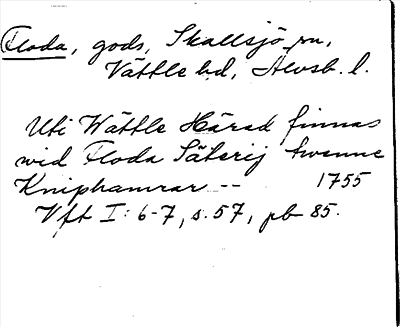 Floda, gods, Skallsjö sn,
Vättle hd, Älvsb. l.
Uti Wättle Härad finnas
wid Floda Säterij twenne
Kniphamrar -- 1755
Vft I: 6-7, s. 57, pb 85.